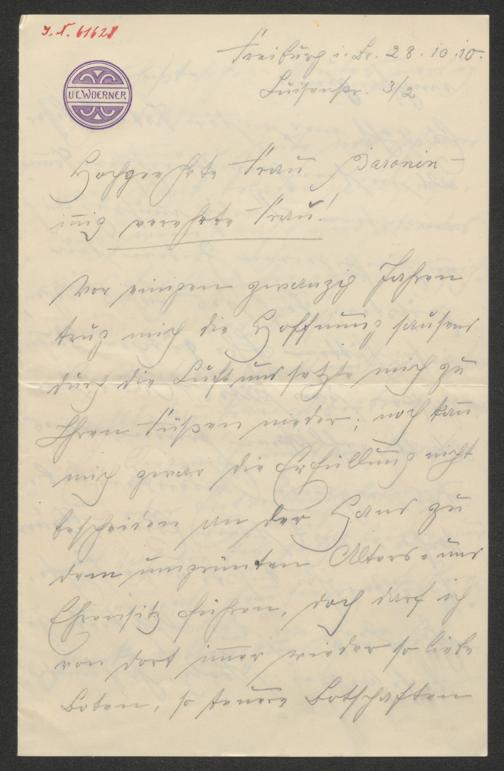 J. N. 61628
U.C. WOERNER
Freiburg i. Br. 28. 10. 10.
Luisenstr. 3/2
Hochgeehrte Frau Baronin –
innig verehrte Frau!
Vor einigen zwanzig Jahren
trug mich die Hoffnung sausend
durch die Luft und setzte mich zu
Ihren Füßen nieder; noch kann
mich zwar die Erfüllung nicht
bescheiden an der Hand zu
dem umgrünten Alters- und
Ehrensitz führen, doch darf ich
von dort immer wieder so liebe
Boten, so teuere Botschaften